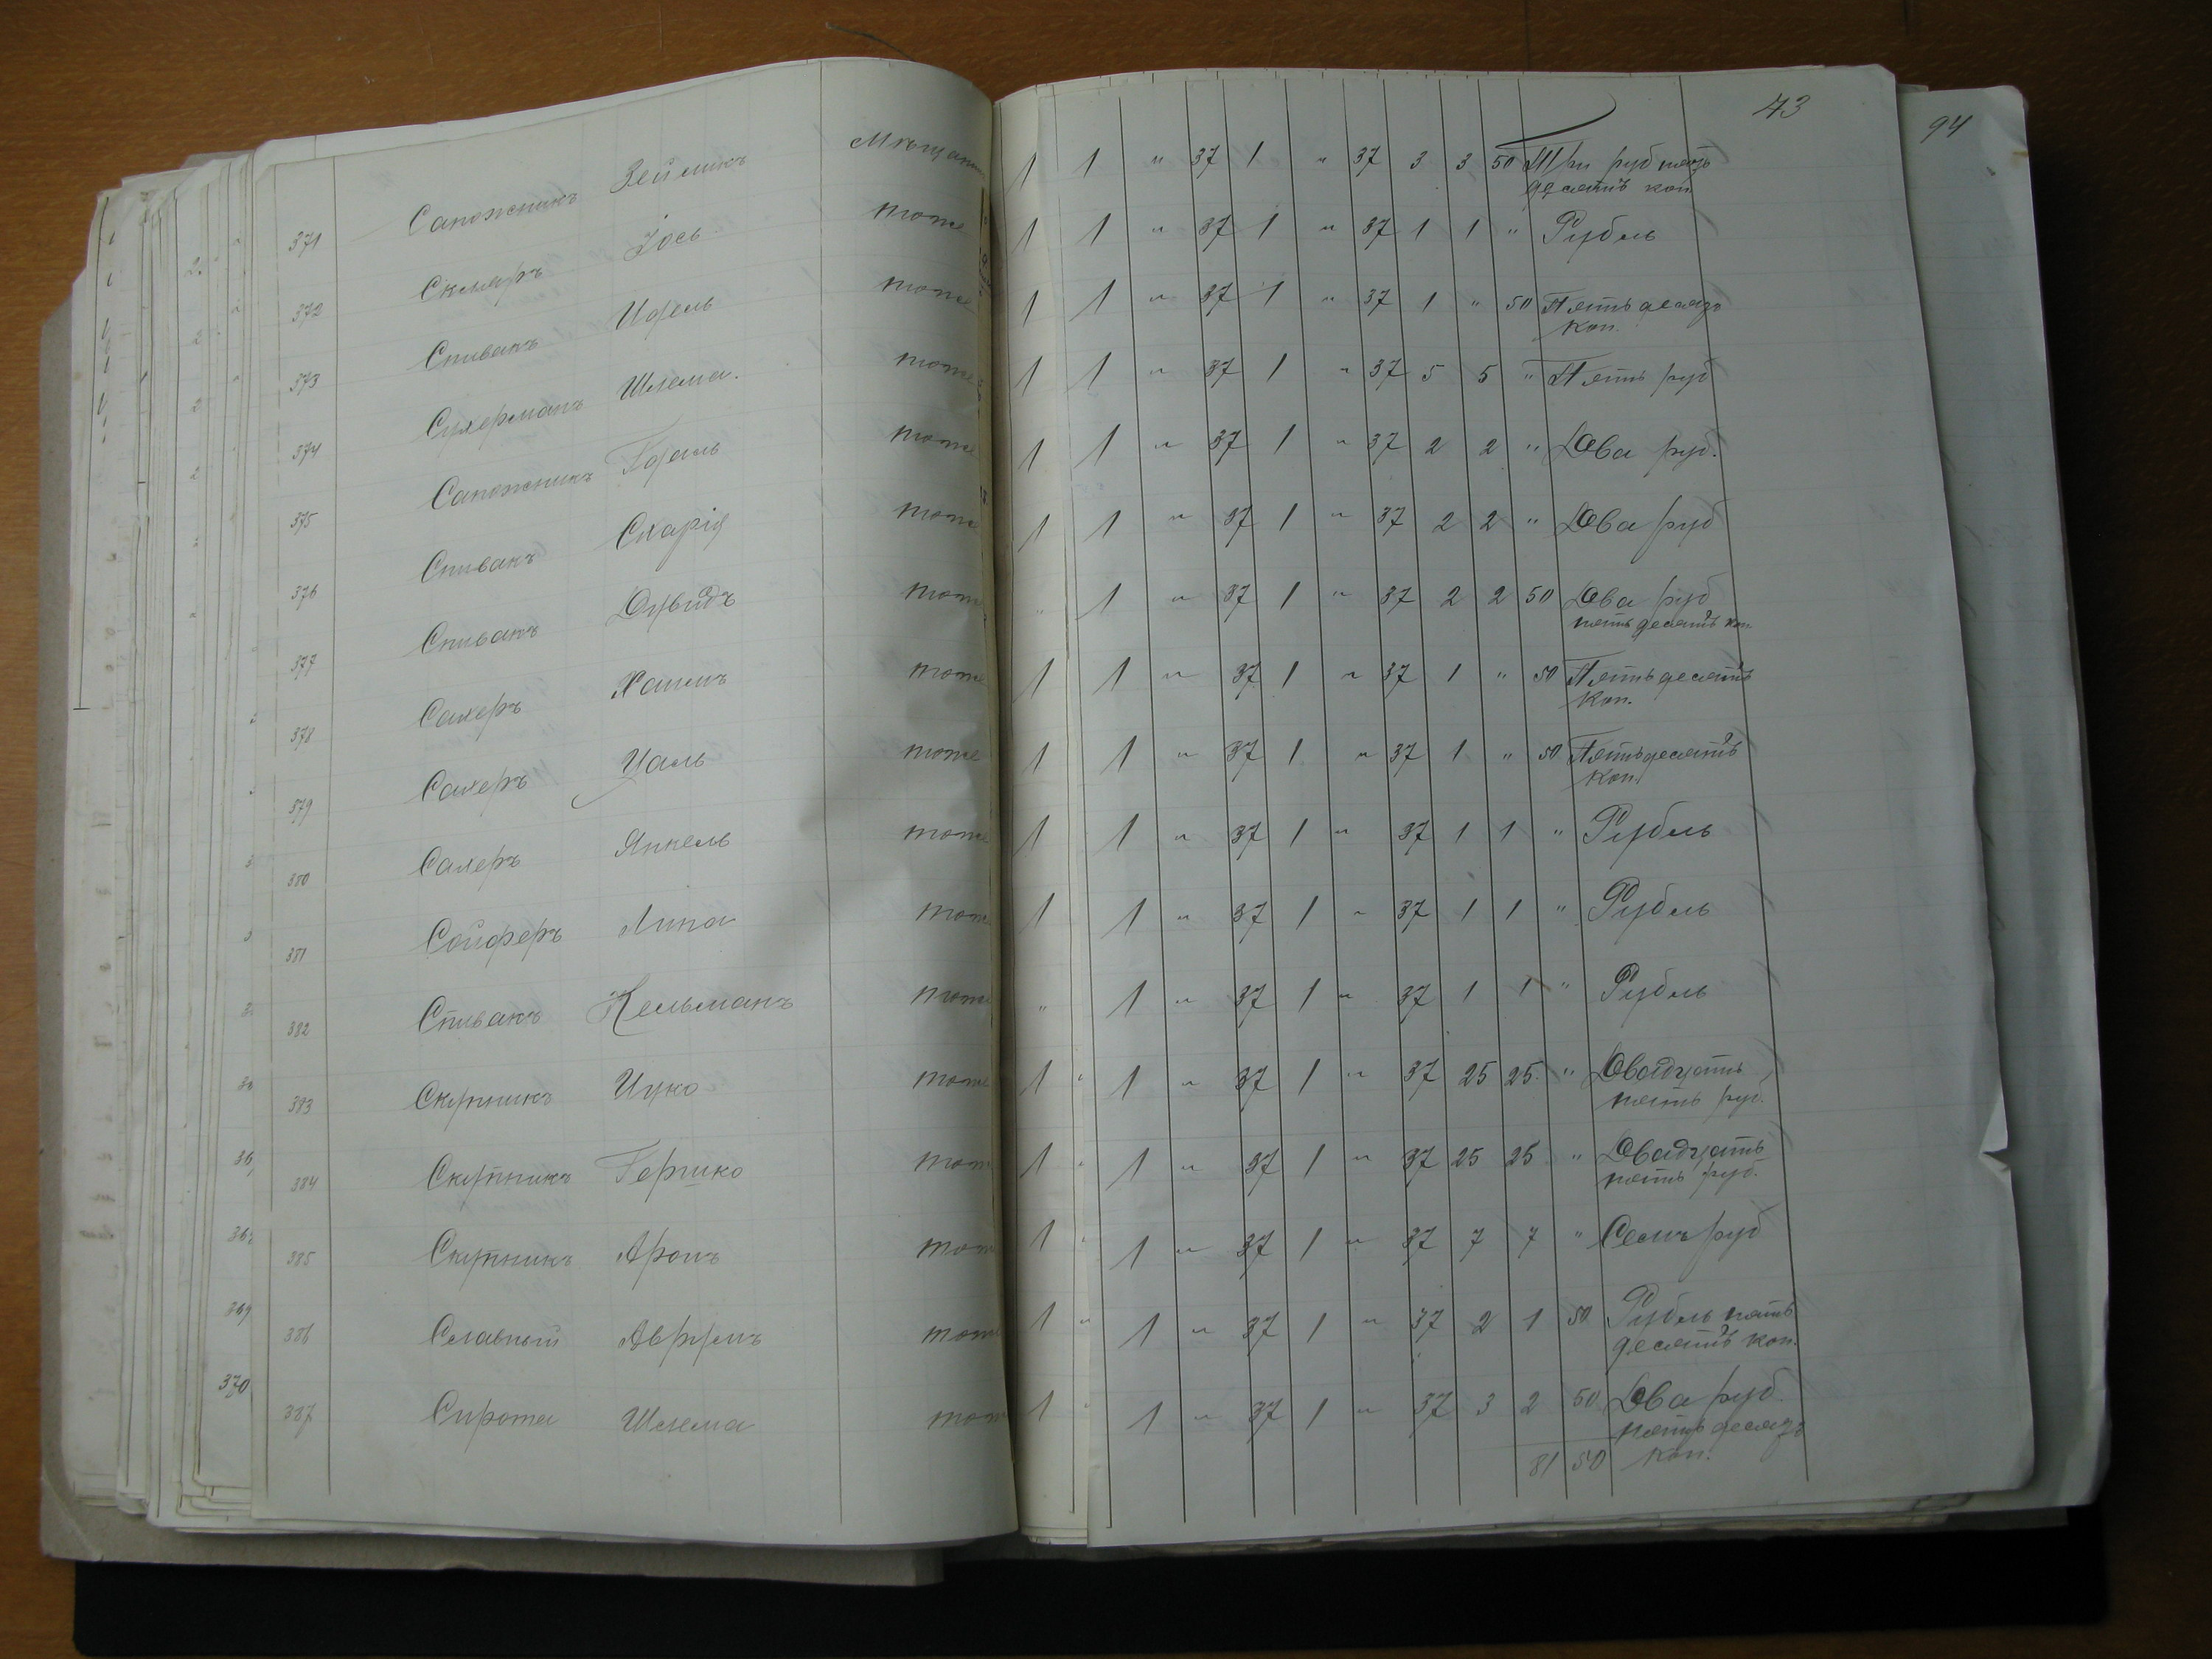 43
94
371 Сапожникъ Зейликъ Мѣщан 1 1 " 37 1 " 37 3 3 50 Три руб пять
десятъ коп
372 Скляръ Іось тоже 1 1 " 37 1 " 37 1 1 " Рубль
373 Спивакъ Идель тоже 1 1 " 37 1 " 37 1 " 50 Пятьдесятъ
коп.
374 Сухерманъ Шлема. тоже 1 1 " 37 1 " 37 5 5 " Пять руб
375 Сапожникъ Годаль тоже 1 1 " 37 1 " 37 2 2 " Два руб.
376 Спивакъ Схарія тоже 1 1 " 37 1 " 37 2 2 " Два руб
377 Спивакъ Дувидъ тоже " 1 " 37 1 " 37 2 2 50 Два руб
пять десятъ коп
378 Салеръ Хаимъ тоже 1 1 " 37 1 " 37 1 " 50 Пятьдесятъ
Коп.
379 Салеръ Цаль тоже 1 1 " 37 1 " 37 1 " 50 Пятьдесятъ
Коп.
380 Салеръ Янкель тоже 1 1 " 37 1 " 37 1 1 " Рубль
381 Сойферъ Липа тоже 1 1 " 37 1 " 37 1 1 " Рубль
382 Спивакъ Кельманъ тоже " 1 " 37 1 " 37 1 1 " Рубль
383 Скутникъ Ицко тоже 1 " 1 " 37 1 " 37 25 25 " Двадцать
пять руб.
384 Скутникъ Гершко тоже 1 " 1 " 37 1 " 37 25 25 " Двадцать
пять руб.
385 Скутникъ Аронъ тоже 1 " 1 " 37 1 " 37 7 7 " Семъ руб
386 Славный Аврумъ тоже 1 " 1 " 37 1 " 37 2 1 50 Рубль пять
десятъ коп.
387 Сирота Шлема тоже 1 " 1 " 37 1 " 37 3 2 50 Два руб.
пять десятъ
81 50 коп.
369
370